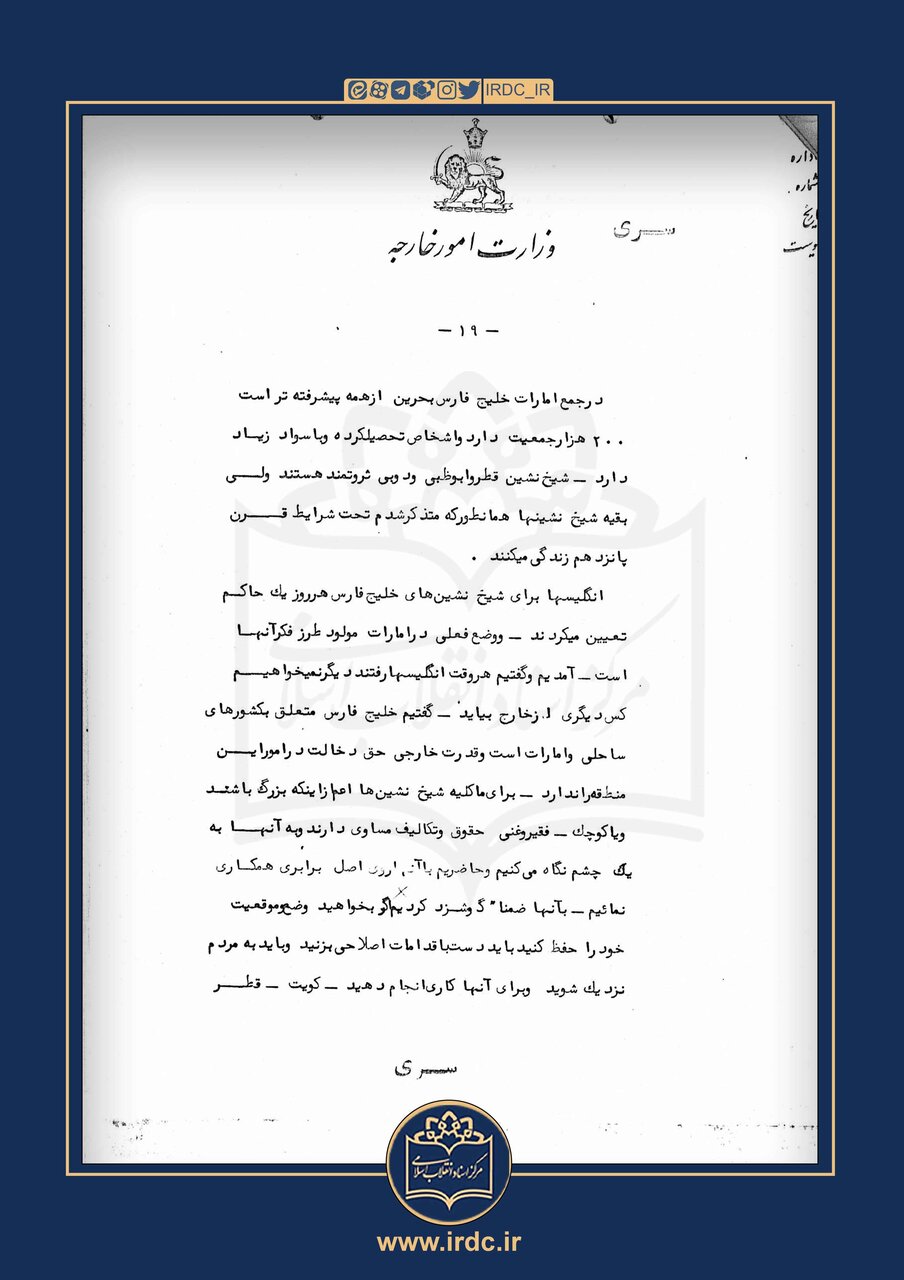 IRDC_IR
اداره
شماره
تاریخ
پیوست
سری
وزارت امور خارجه
- ۱۹ -
درجمع امارات خلیج فارس بحرین ازهمه پیشرفته تر است
۲۰۰ هزارجمعیت دارد واشخاص تحصیلکرده وباسواد زیاد
دارد ــ شیخ نشین قطروابوظبی ودوبی ثروتمند هستند ولی
بقیه شیخ نشینها همانطورکه متذکرشدم تحت شرایط قرن
پانزدهم زندگی میکنند .
انگلیسها برای شیخ نشین‌های خلیج فارس هرروز یك حاکم
تعیین میکردند ــ ووضع فعلی درامارات مولود طرز فکرآنها
است ــ آمدیم وگفتیم هروقت انگلیسهارفتند دیگرنمیخواهیم
کس دیگری ازخارج بیاید ــ گفتیم خلیج فارس متعلق بکشورهای
ساحلی وامارات است وقدرت خارجی حق دخالت درامورایـن
منطقه‌راندارد ــ برای‌ماکلیه شیخ نشین‌ها اعم‌ازاینکه بزرگ باشند
ویاکوچك ــ فقیروغنی حقوق وتکالیف مساوی دارند وبه آنها به
یك چشم نگاه می‌کنیم وحاضریم باآنها روی اصل برابری همکاری
نمائیم ــ بآنها ضمنا" گوشزد کردیم اگر بخواهید وضع‌وموقعیت
خود را حفظ کنید باید دست‌باقدامات اصلاحی بزنید وباید به مردم
نزدیك شوید وبرای آنها کاری‌انجام دهید ــ کویت ــ قطر
سری
مرکز اسناد انقلاب اسلامی
www.irdc.ir